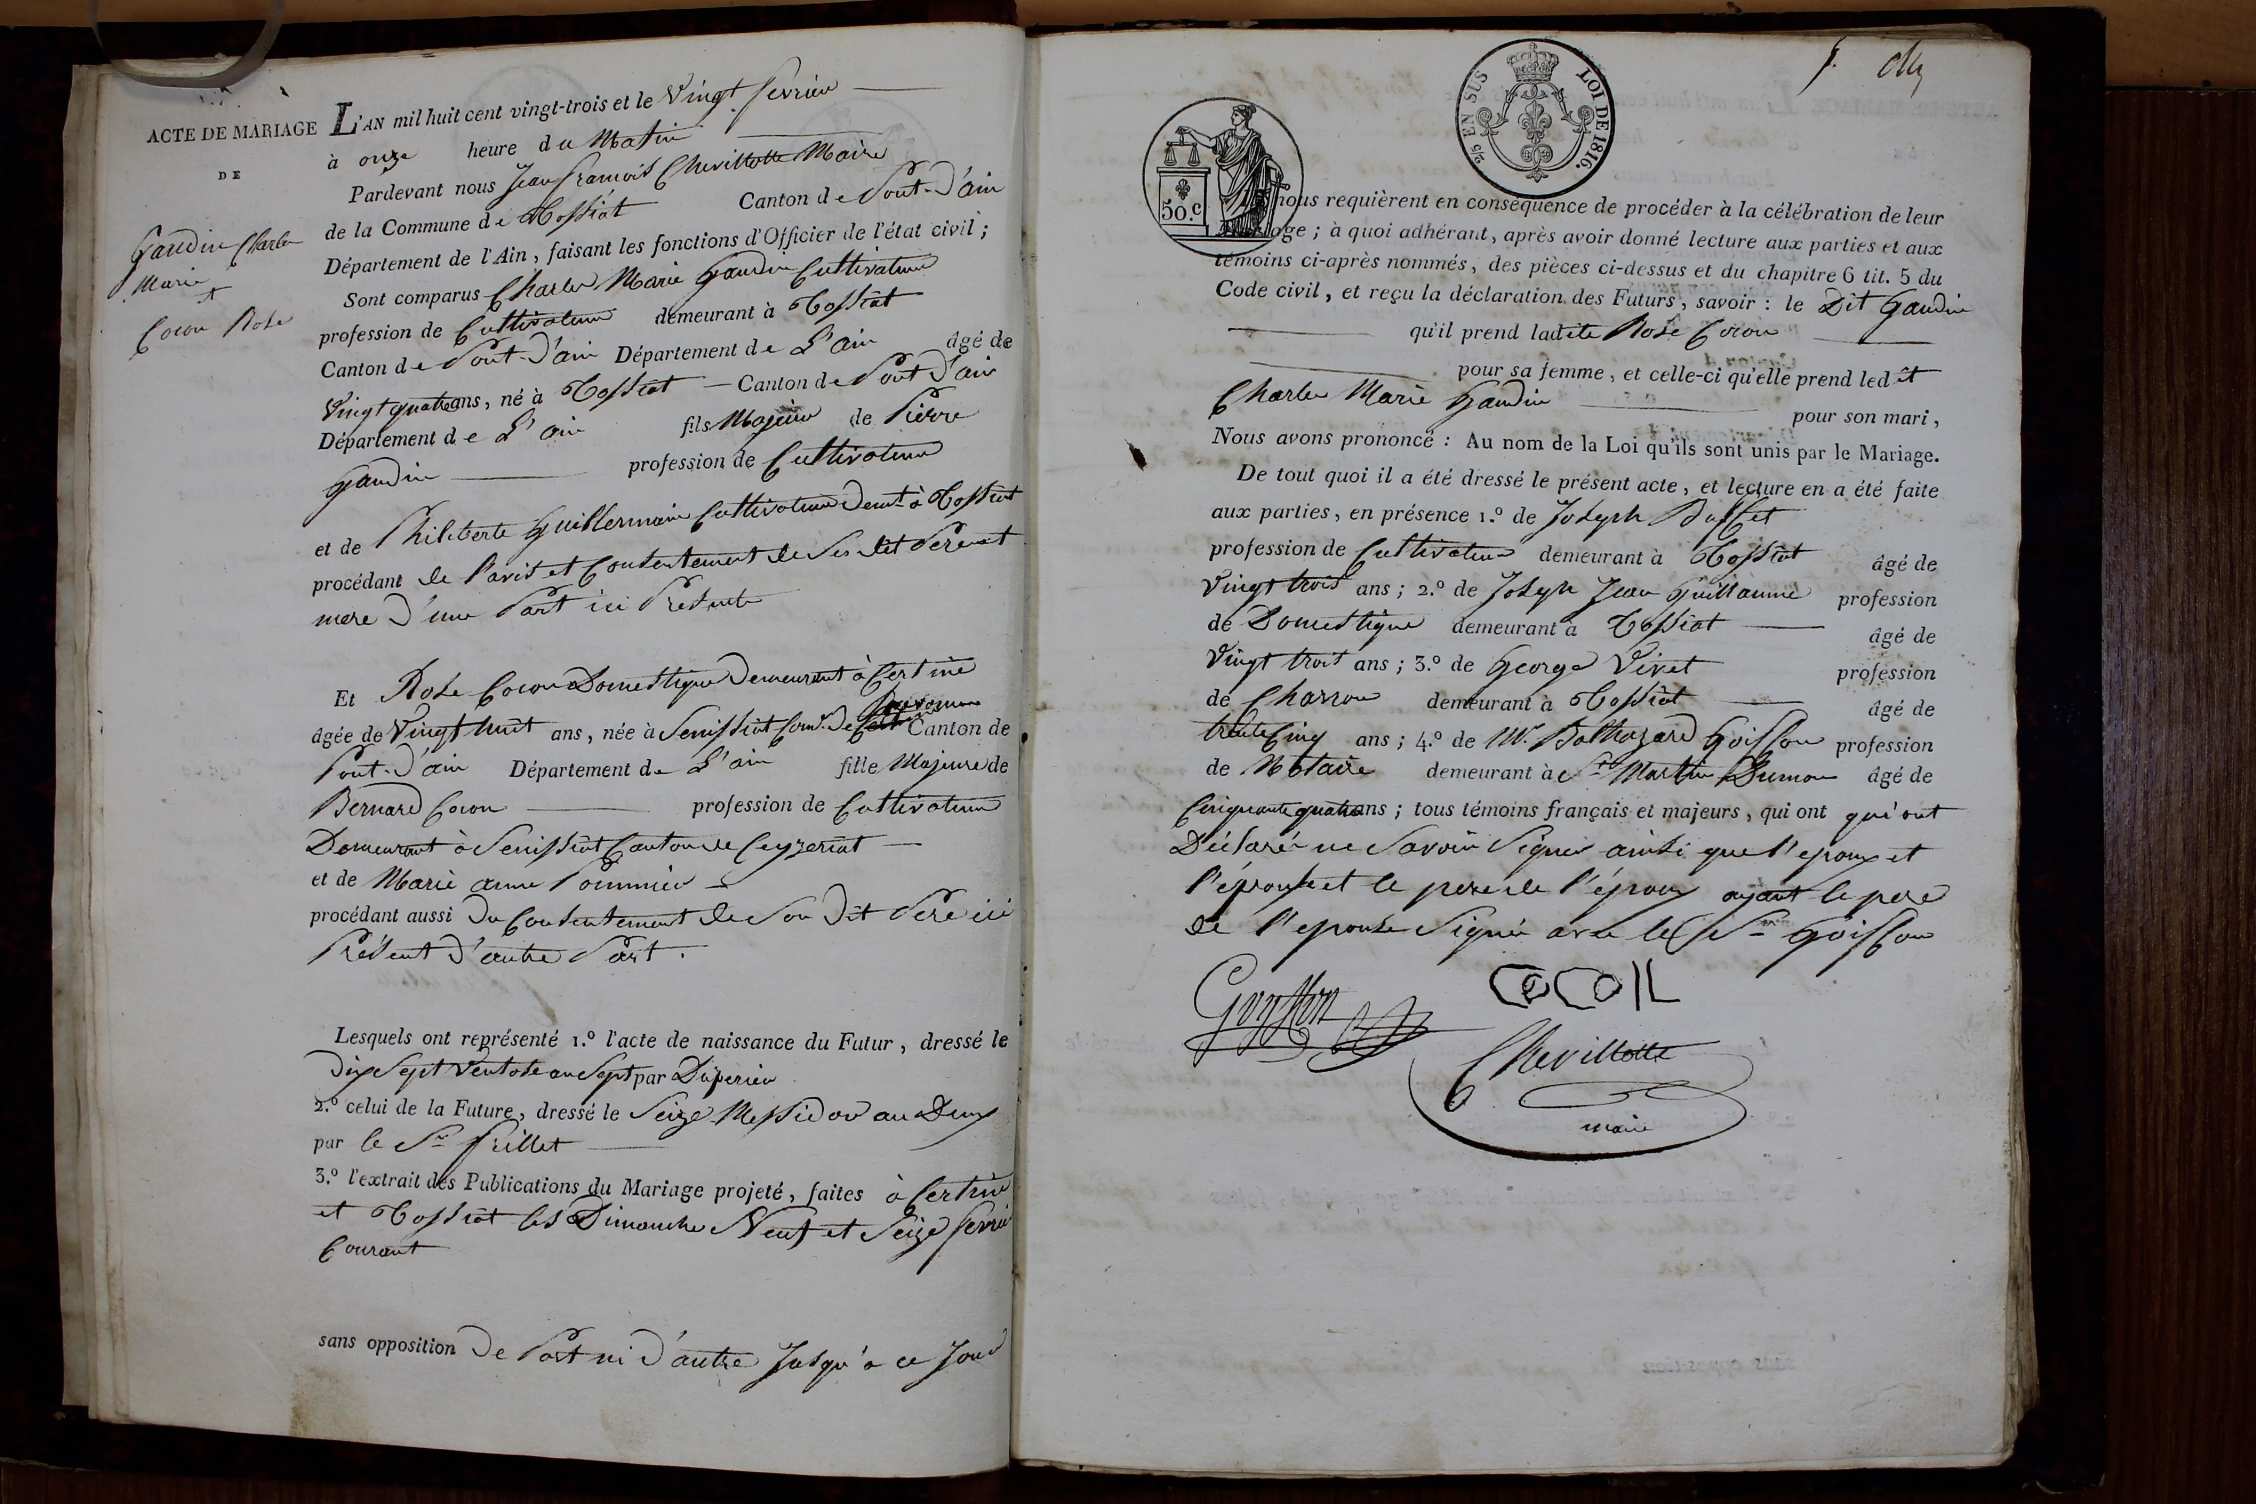 ACTE DE MARIAGE
DE
Gaudin Charle
Marie
+
Cocon Rose
L'AN mil huit cent vingt-trois et le Vingt fevrier
à onze heure du Matin
Pardevant nous Jean francois Chevillotte Maire
de la Commune de Tossiat Canton de Pont-d'ain
Département de l'Ain, faisant les fonctions d'Officier de l'état civil ;
Sont comparus Charle Marie Gaudin Cultivateur
profession de Cultivateur demeurant à Tossiat
Canton de Pont-d'ain Département de L'ain âgé de
Vingt quatre ans, né à Tossiat Canton de Pont d'ain
Département de L'ain fils Majeur de Pierre
Gaudin profession de Cultivateur
et de Philiberte Guillermain Cultivateur demt à Tossiat
procédant de l'avis et Consentement de Ses dit Pere et
mere d'une Part ici Presente
Et Rose Cocon Domestique Demeurant à Certine
âgée de Vingt huit ans, née à Senissiat Comm. de Canton de
Pont-d'ain Département de L'ain fille Majeure de
Bernard Cocon profession de Cultivateur
Demeurant à Senissiat Canton de Ceyzeriat
et de Marie anne Pommier
procédant aussi du Consentement de Son Dit Pere ici
Présent d'autre Part.
Lesquels ont représenté 1.º l'acte de naissance du Futur, dressé le
dix Sept Ventose an Sept par Duperier
2.º celui de la Future, dressé le Seize Messidor an Deux
par le Sr frillet
3.º l'extrait des Publications du Mariage projeté, faites à Certine
et Tossiat les Dimanche Neuf et Seize fevrier
Courant
sans opposition De Part ni d'autre Jusqu'a ce Jour
50.c
2/5 EN SUS LOI DE 1816.
nous requièrent en conséquence de procéder à la célébration de leur
age ; à quoi adhérant, après avoir donné lecture aux parties et aux
témoins ci-après nommés, des pièces ci-dessus et du chapitre 6 tit. 5 du
Code civil, et reçu la déclaration des Futurs, savoir : le Dit Gaudin
qu'il prend ladite Rose Cocon
pour sa femme, et celle-ci qu'elle prend ledit
Charle Marie Gaudin pour son mari,
Nous avons prononcé : Au nom de la Loi qu'ils sont unis par le Mariage.
De tout quoi il a été dressé le présent acte, et lecture en a été faite
aux parties, en présence 1.º de Joseph
profession de Cultivateur demeurant à Tossiat âgé de
Vingt trois ans ; 2.º de Joseph Jean Guillaume profession
de Domestique demeurant à Tossiat âgé de
Vingt trois ans ; 3.º de George Vivet profession
de Charron demeurant à Tossiat âgé de
trente Cinq ans ; 4.º de Mr. Balthazard Goiffon profession
de Notaire demeurant à St Martin Dumon âgé de
Cinquante quatre ans ; tous témoins français et majeurs, qui ont qui ont
Déclaré ne Savoir Signer ainsi que l'epoux et
l'épouse et le pere de l'époux ayant le pere
de l'epouse Signé avec le Sr Goiffon
Goyffon
COCON
Chevillotte
maire